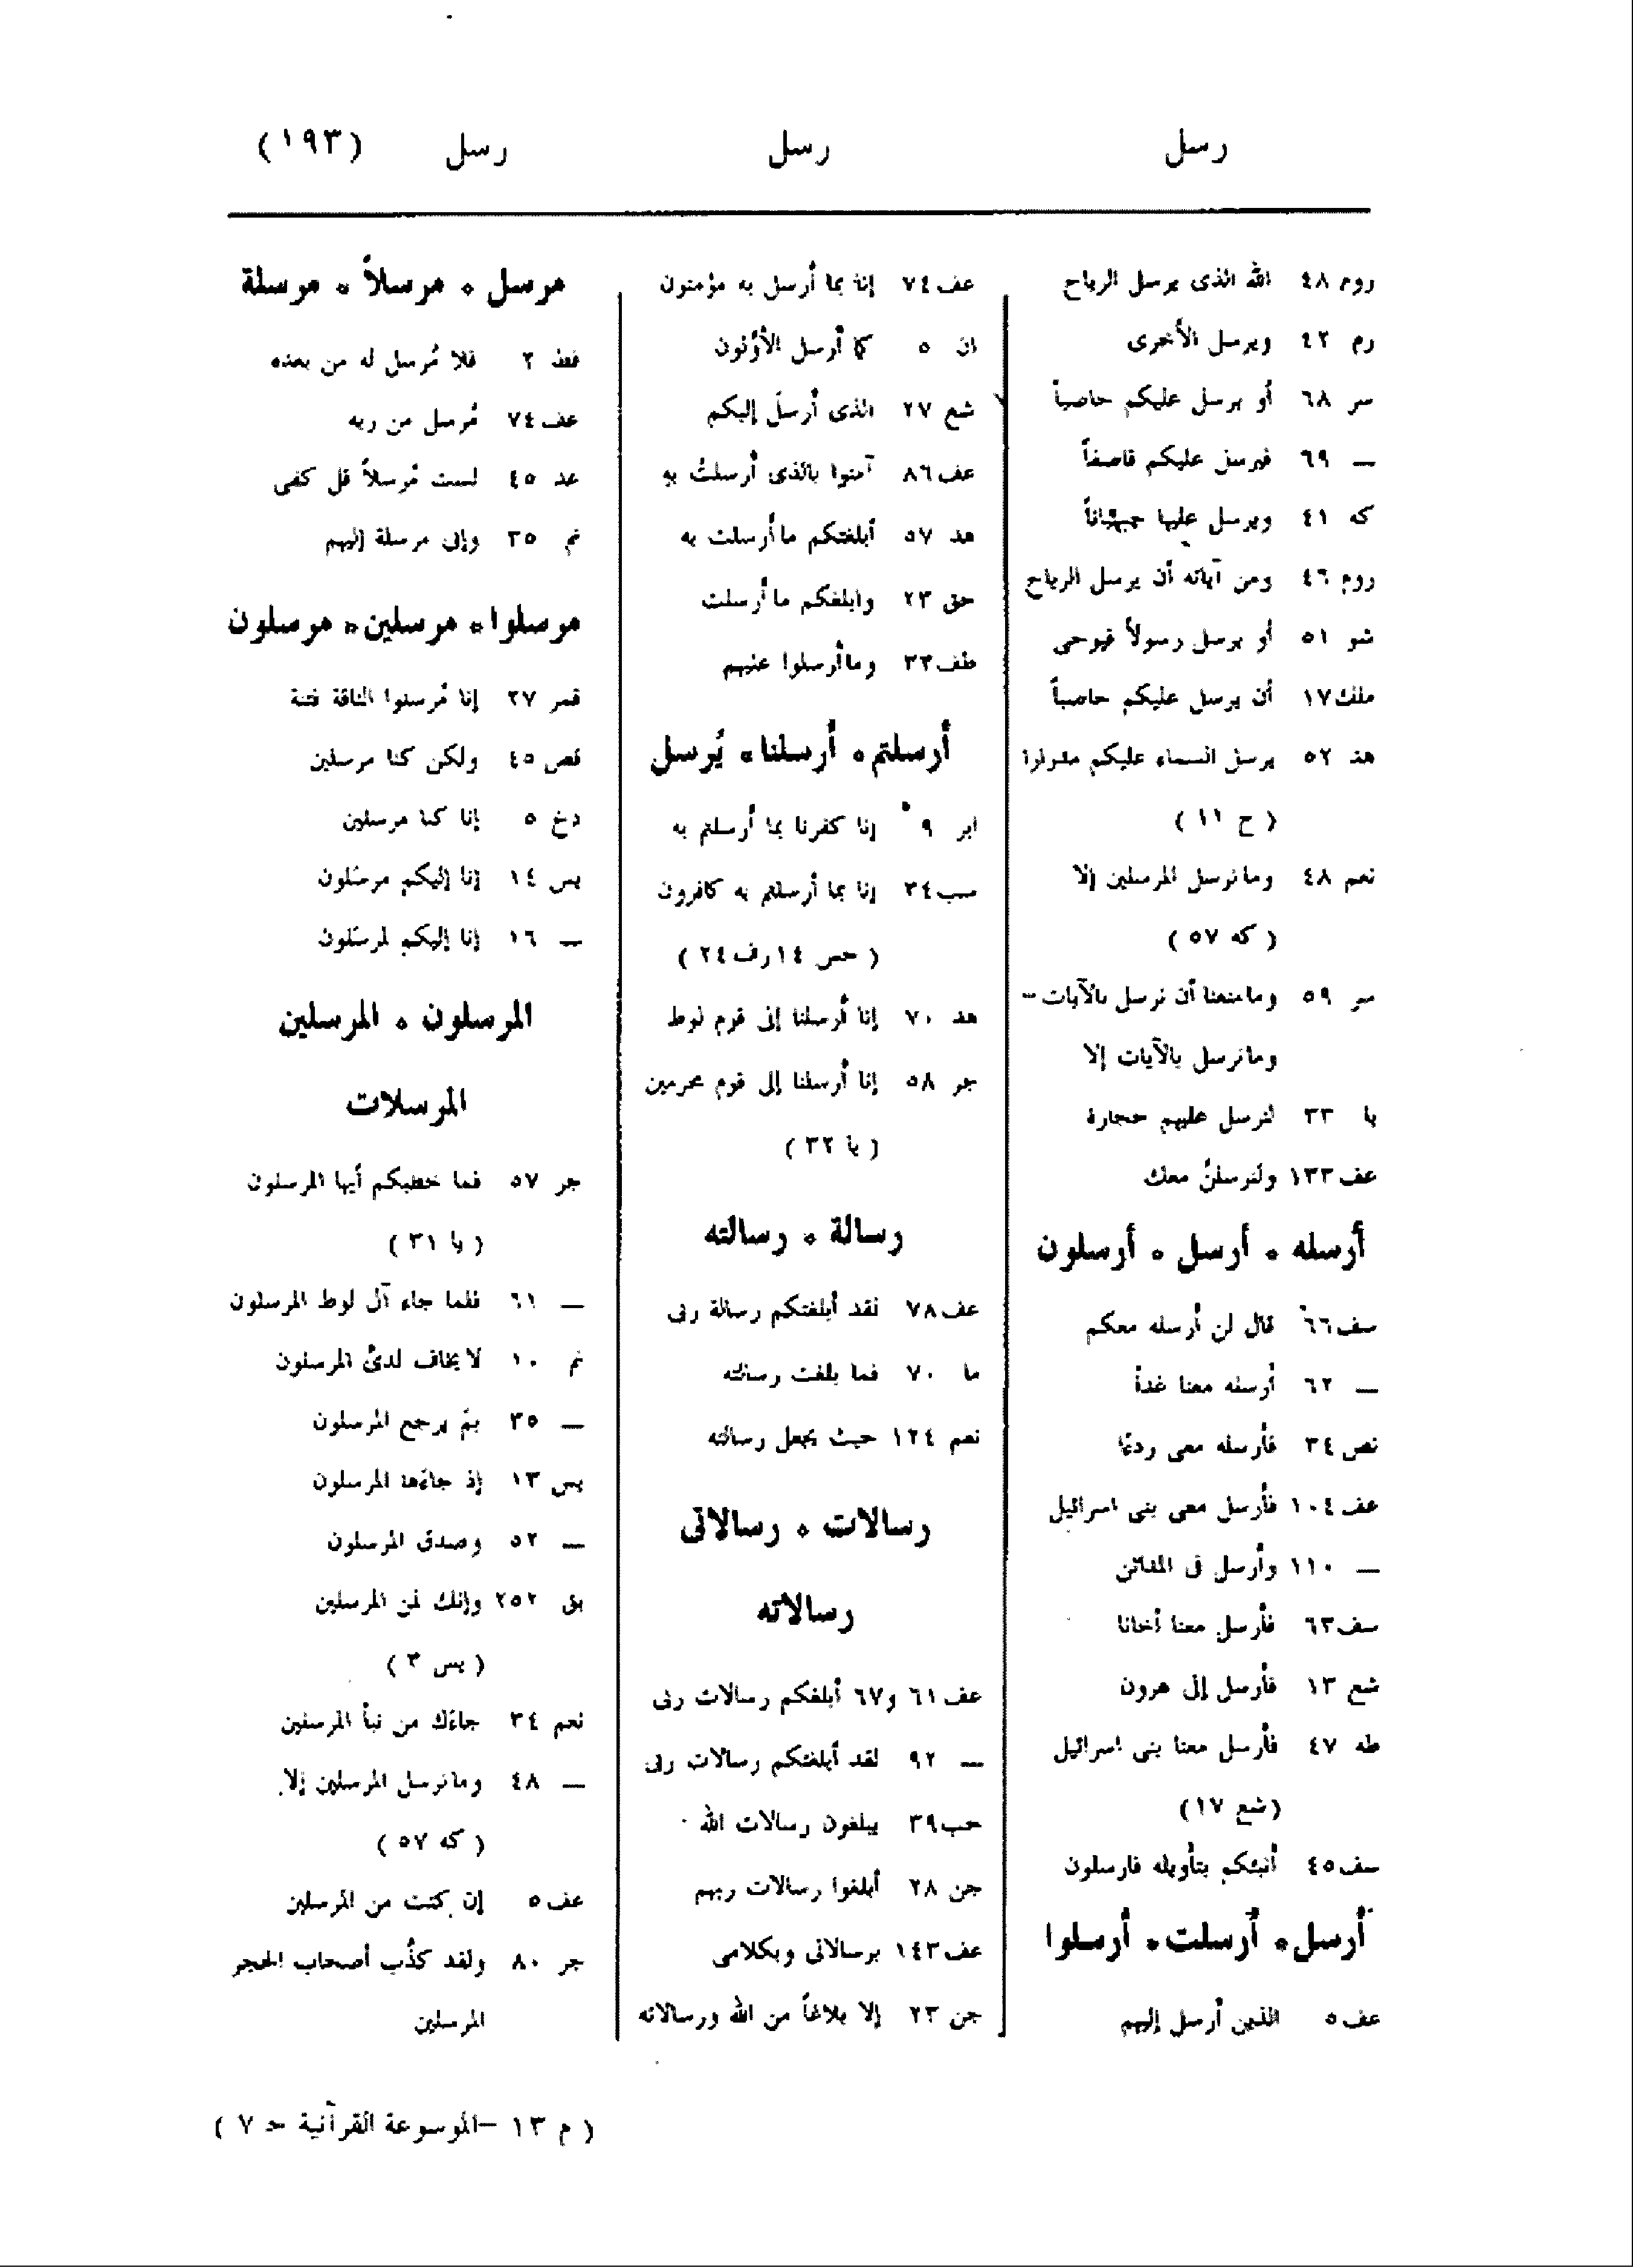 رسل رسل رسل (١٩٣)
روم ٤٨ الله الذى يرسل الرياح
رم ٤٢ ويرسل الأخرى
سر ٦٨ أو يرسل عليكم حاصباً
— ٦٩ فيرسل عليكم قاصفاً
كه ٤١ ويرسل عليها حسباناً
روم ٤٦ ومن آياته أن يرسل الرياح
شو ٥١ أو يرسل رسولاً فيوحى
ملك ١٧ أن يرسل عليكم حاصباً
هد ٥٢ يرسل السماء عليكم مدرارا
( ح ١١ )
نعم ٤٨ وما نرسل المرسلين إلا
( كه ٥٧ )
سر ٥٩ وما منعنا أن نرسل بالآيات –
وما نرسل بالآيات إلا
يا ٣٣ لنرسل عليهم حجارة
عف ١٣٣ ولنرسلنّ معك
أرسله ٠ أرسل ٠ أرسلون
سف ٦٦ قال لن أرسله معكم
— ٦٢ أرسله معنا غداً
قص ٣٤ فأرسله معى ردءًا
عف ١٠٤ فأرسل معى بنى اسرائيل
— ١١٠ وأرسل فى المدائن
سف ٦٣ فأرسل معنا أخانا
شع ١٣ فأرسل إلى هرون
طه ٤٧ فأرسل معنا بنى اسرائيل
(شع ١٧)
سف ٤٥ أنبئكم بتأويله فارسلون
أرسل ٠ أرسلت ٠ أرسلوا
عف ٥ الذين أرسل إليهم
عف ٧٤ إنا بما أرسل به مؤمنون
ان ٥ كما أرسل الأوّلون
شع ٢٧ الذى أرسل إليكم
عف ٨٦ آمنوا بالذى أرسلتُ به
هد ٥٧ أبلغتكم ما أرسلت به
حق ٢٣ وابلغكم ما أرسلت
طف ٣٣ وما أرسلوا عليهم
أرسلتم ٠ أرسلنا ٠ يُرسل
ابر ٩ إنا كفرنا بما أرسلتم به
سب ٣٤ إنا بما أرسلتم به كافرون
( حص ١٤ رف ٢٤ )
هد ٧٠ إنا أرسلنا إلى قوم لوط
جر ٥٨ إنا أرسلنا إلى قوم مجرمين
( يا ٣٢ )
رسالة ٠ رسالته
عف ٧٨ لقد أبلغتكم رسالة ربى
ما ٧٠ فما بلغت رسالته
نعم ١٢٤ حيث يجعل رسالته
رسالات ٠ رسالاتى
رسالاته
عف ٦١ و٦٧ أبلغكم رسالات ربى
— ٩٢ لقد أبلغتكم رسالات ربى
حب ٣٩ يبلغون رسالات الله
جن ٢٨ أبلغوا رسالات ربهم
عف ١٤٣ برسالاتى وبكلامى
جن ٢٣ إلا بلاغاً من الله ورسالاته
مرسل ٠ مرسلاً ٠ مرسلة
فط ٢ فلا مُرسل له من بعده
عف ٧٤ مُرسل من ربه
عد ٤٥ لست مُرسلاً قل كفى
نم ٣٥ وإنى مرسلة إليهم
مرسلوا ٠ مرسلين ٠ مرسلون
قمر ٢٧ إنا مُرسلوا الناقة فتنة
قص ٤٥ ولكن كنا مرسلين
دخ ٥ إنا كنا مرسلين
يس ١٤ إنا إليكم مرسَلون
— ١٦ إنا إليكم لمرسَلون
المرسلون ٠ المرسلين
المرسلات
جر ٥٧ فما خطبكم أيها المرسلون
( يا ٣١ )
— ٦١ فلما جاء آل لوط المرسلون
نم ١٠ لا يخاف لدىّ المرسلون
— ٣٥ بمَ يرجع المرسلون
يس ١٣ إذ جاءها المرسلون
— ٥٢ وصدق المرسلون
بق ٢٥٢ وإنك لمن المرسلين
( يس ٣ )
نعم ٣٤ جاءك من نبأ المرسلين
— ٤٨ وما نرسل المرسلين إلا
( كه ٥٧ )
عف ٥ إن كنت من المرسلين
جر ٨٠ ولقد كذّب أصحاب الحجر
المرسلين
( م ١٣ – الموسوعة القرآنية ح ٧ )